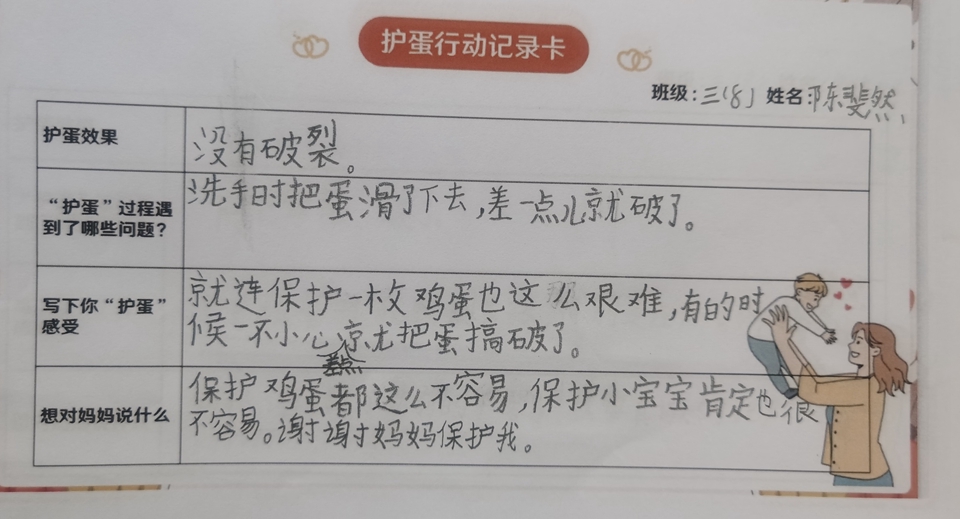 护蛋行动记录卡
班级：三(8) 姓名：陈斐然
护蛋效果
没有破裂。
“护蛋”过程遇到了哪些问题？
洗手时把蛋滑了下去，差一点儿就破了。
写下你“护蛋”感受
就连保护一枚鸡蛋也这么艰难，有的时
候一不小心差点就把蛋搞破了。
想对妈妈说什么
保护鸡蛋都这么不容易，保护小宝宝肯定也很
不容易。谢谢妈妈保护我。